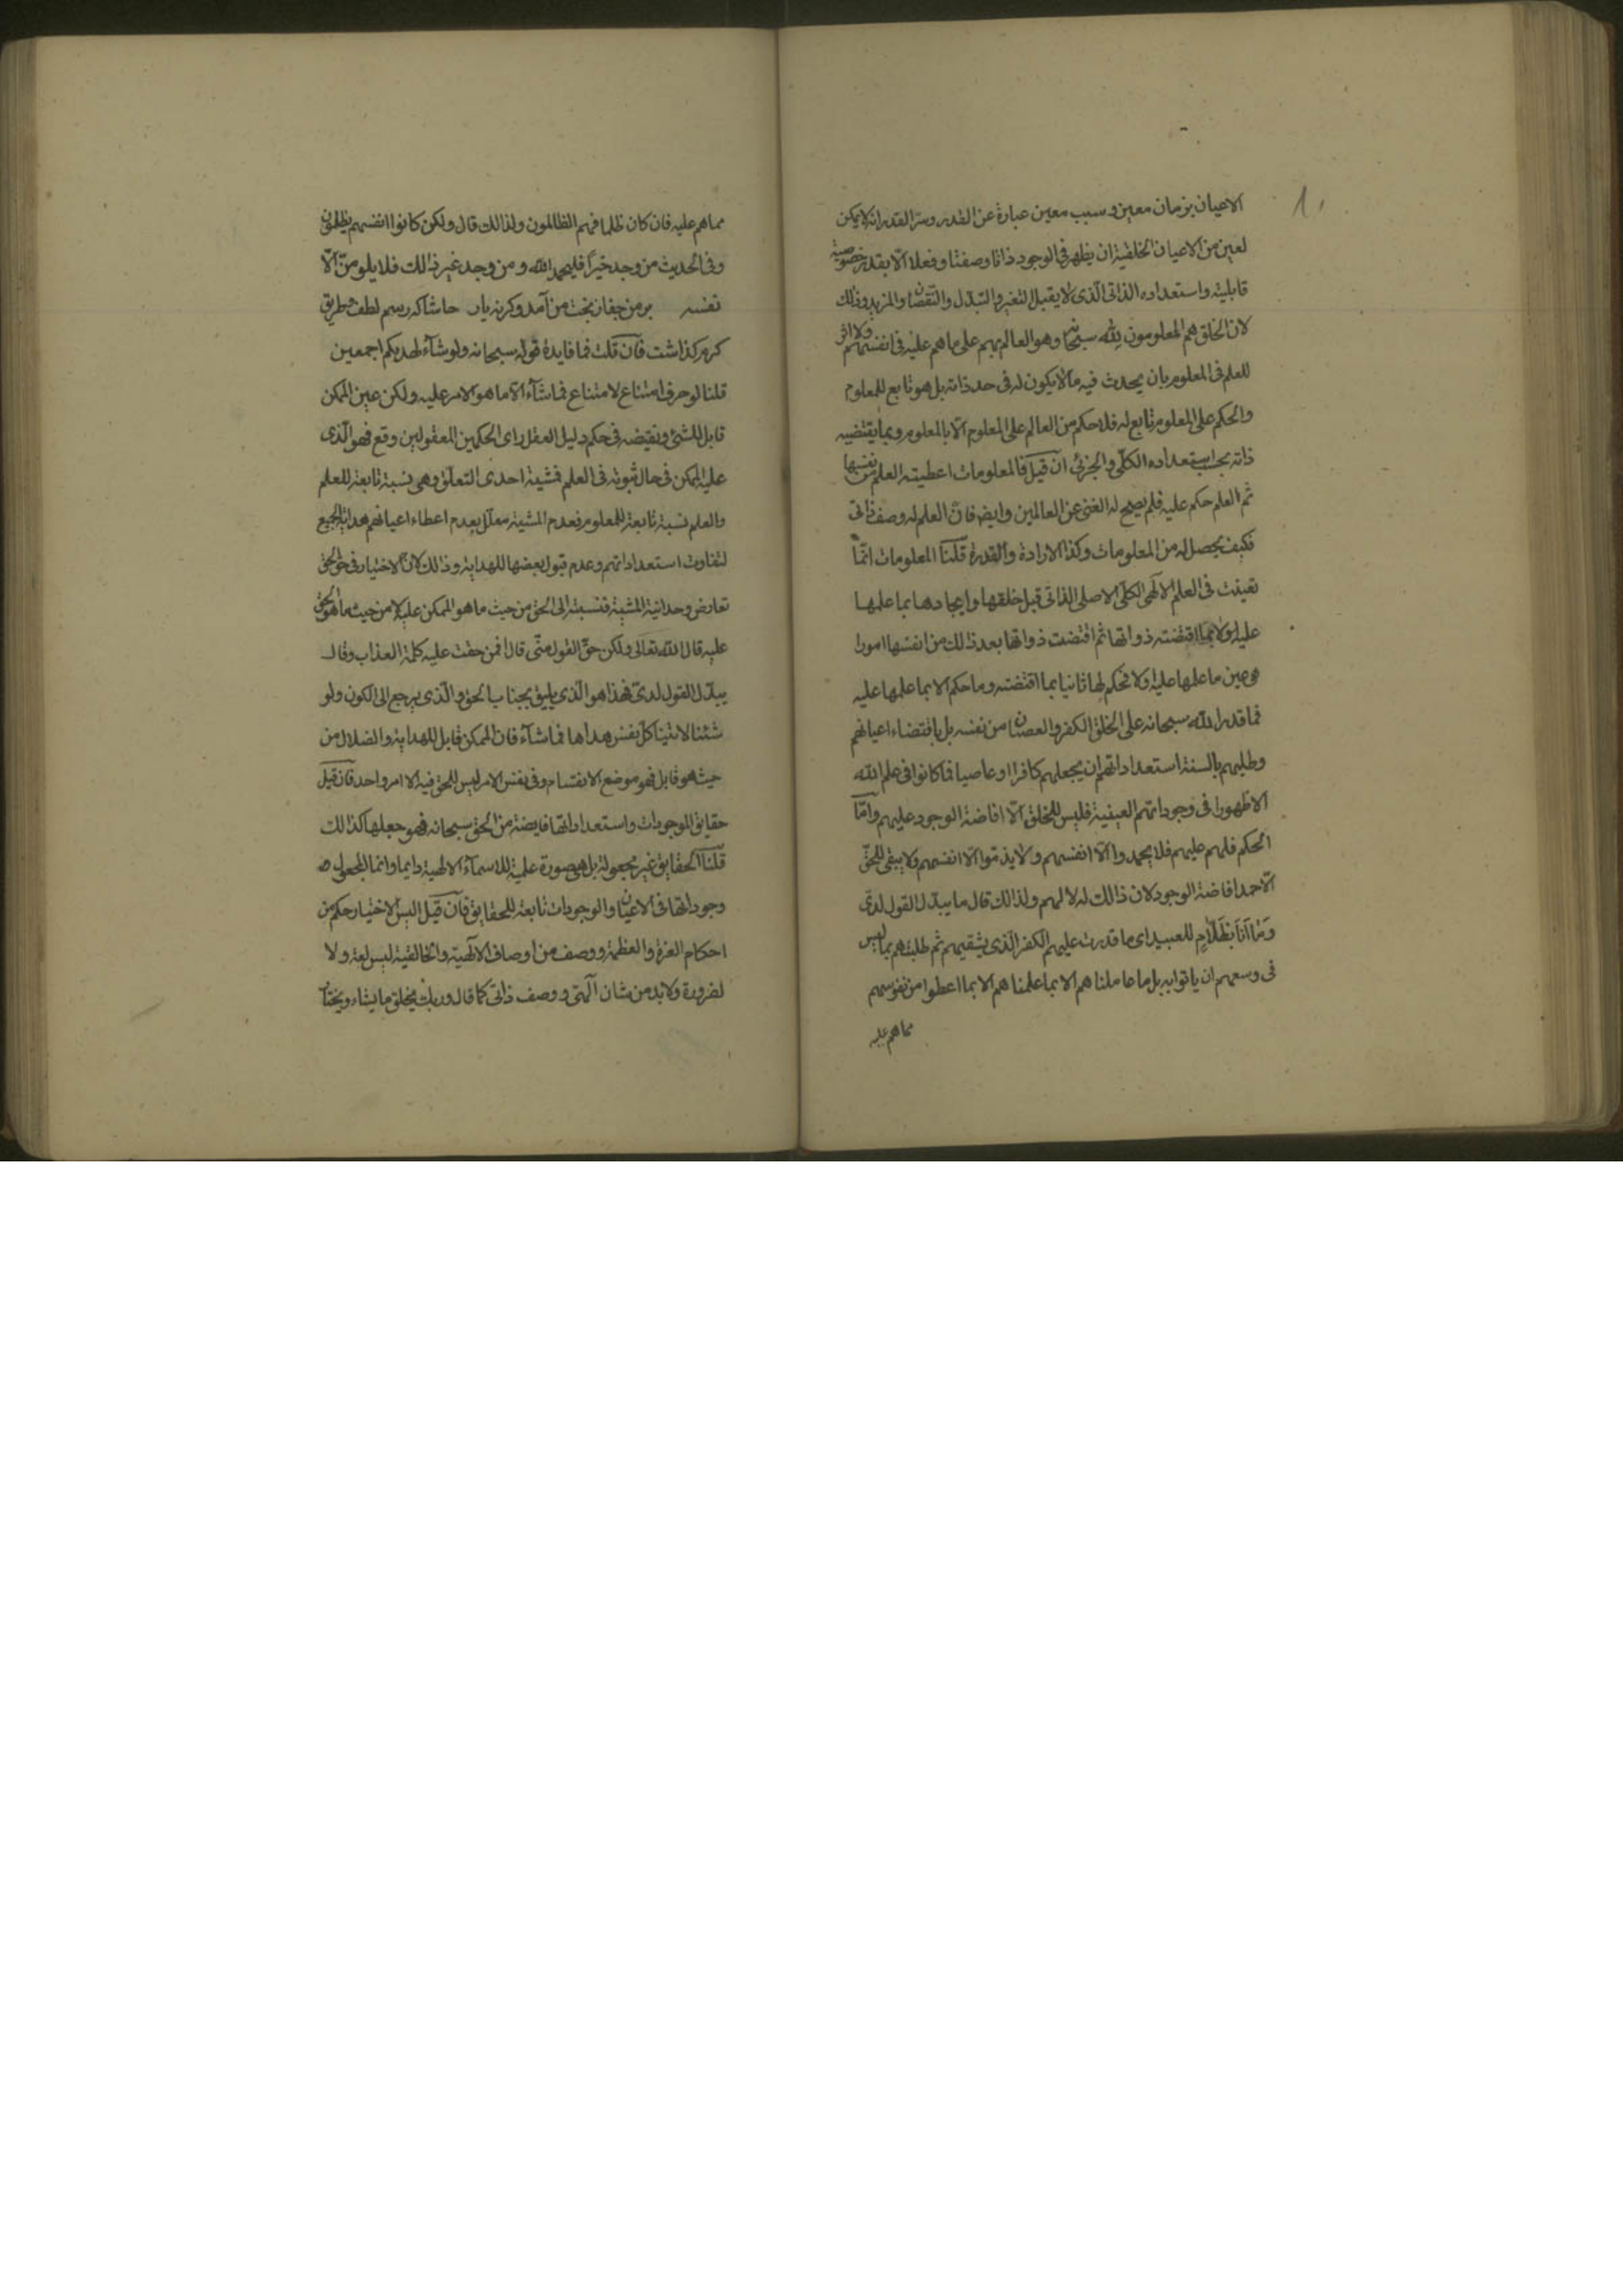 ١٠
الاعيان بزمان معين و سبب معين عبارة عن القدر وسرّ القدر انه لا يمكن
لعين من الاعيان الخلقية ان يظهر فى الوجود ذاتا وصفتا وفعلا الّا بقدر خصوصية
قابليته واستعداده الذاتى الّذى لا يقبل التغير والتبدّل والنّقصان والمزيد وذلك
لان الخلق هم المعلومون لله سبحانه وهو العالم بهم على ما هم عليه فى انفسهم ولا اثر
للعلم فى المعلوم بان يحدث فيه ما لا يكون له فى حد ذاته بل هو تابع للمعلوم
والحكم على المعلوم تابع له فلا حكم من العالم على المعلوم الّا بالمعلوم وبما يقتضيه
ذاته بحسب استعداده الكلّى والجزئى ان قيل فالمعلومات اعطيته العلم من نفسها
ثم العلم حكم عليه فلم يصح له الغنى عن العالمين وايضا فانّ العلم له وصف ذاتى
فكيف يحصل له من المعلومات وكذا الارادة والقدرة قلنا المعلومات انّما
تعينت فى العلم الالهى الكلّى الاصلى الذاتى قبل خلقها وايجادها بما علمها
عليه اولا بما اقتضته ذواتها ثم اقتضت ذواتها بعد ذلك من انفسها امورا
هى عين ما علمها عليه اولا فحكم لها ثانيا بما اقتضته وما حكم الا بما علمها عليه
فما قدر الله سبحانه على الخلق الكفر والعصيان من نفسه بل باقتضاء اعيانهم
وطلبهم بالسنة استعداداتهم ان يجعلهم كافرا او عاصيا فما كانوا فى علم الله
الا ظهورا فى وجوداتهم العينية فليس للخلق الّا افاضة الوجود عليهم وامّا
الحكم فلهم عليهم فلا يحمدوا الّا انفسهم ولا يذمّوا الّا انفسهم ولا يبقى للحقّ
الّا حمد افاضة الوجود لان ذالك له لا لهم ولذالك قال ما يبدّل القول لدىّ
وَمَا اَنَا بِظَلَّامٍ للعبيد اى ما قدرت عليهم الكفر الّذى يشقيهم ثم طلبتهم بما ليس
فى وسعهم ان ياتوا به بل ما عاملناهم الا بما علمناهم الا بما اعطوا من نفوسهم
مما هم عليه
مما هم عليه فان كان ظلما فهم الظالمون ولذالك قال ولكن كانوا انفسهم يظلمون
وفى الحديث من وجد خيرًا فليحمد الله و من وجد غير ذالك فلا يلومنّ الّا
نفسه بر من جفا ز بخت من آمد وكرنه يار حاشا كه رسم لطف و طريق
كرم كذاشت فان قلت فما فايدة قوله سبحانه ولو شآء لهديكم اجمعين
قلنا لو حرف امتناع لامتناع فما شآء الّا ما هو الامر عليه ولكن عين الممكن
قابل للشئ ونقيضه فى حكم دليل العقل واى الحكمين المعقولين وقع فهو الّذى
عليه الممكن فى حال ثبوته فى العلم فمشيته احدى التعلّق وهى نسبة تابعة للعلم
والعلم نسبة تابعة للمعلوم فعدم المشية معلّل بعدم اعطاء اعيانهم هداية الجميع
لتفاوت استعداداتهم وعدم قبول بعضها للهداية وذالك لانّ الاختيار فى حق الحق
تعارض وحدانية المشية فنسبته الى الحق من حيث ما هو الممكن عليه لا من حيث ما هو الحق
عليه قال الله تعالى ولكن حقّ القول منّى قال افمن حقت عليه كلمة العذاب وقال
يبدّل القول لدىّ فهذا هو الّذى يليق بجناب الحق والّذى يرجع الى الكون ولو
شئنا لاتينا كلّ نفس هداها فما شآء فان الممكن قابل للهداية والضلال من
حيث هو قابل فهو موضع الانقسام وفى نفس الامر ليس للحق فيه الا امر واحد فان قيل
حقايق الموجودات واستعداداتها فايضة من الحق سبحانه فهو جعلها كذالك
قلنا الحقايق غير مجعولة بل هى صورة علمية للاسمآء الالهية دايما وانما المجعول
وجوداتها فى الاعيان والوجودات تابعة للحقايق فان قيل اليس الاختيار حكم من
احكام العزة والعظمة ووصف من اوصاف الالهية والخالقية ليس لعة ولا
لضرورة ولا بد من شان الّهى ووصف ذاتى كما قال وربك يخلق ما يشاء ويختار